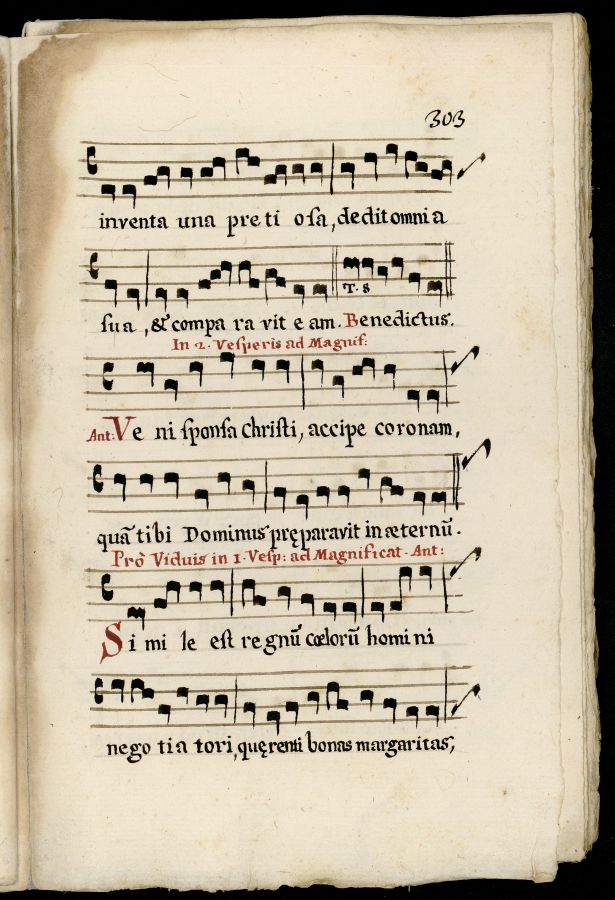 303
inventa una preti osa, dedit omnia
T. 8
sua, & compa ra vit e am. Benedictus.
In 2. Vesperis ad Magnif:
Ant: Ve ni sponsa Christi, accipe coronam,
quā tibi Dominus pręparavit in æternū.
Prò Viduis in 1. Vesp: ad Magnificat. Ant:
Si mi le est regnū cœlorū homi ni
nego tia tori, quęrenti bonas margaritas,